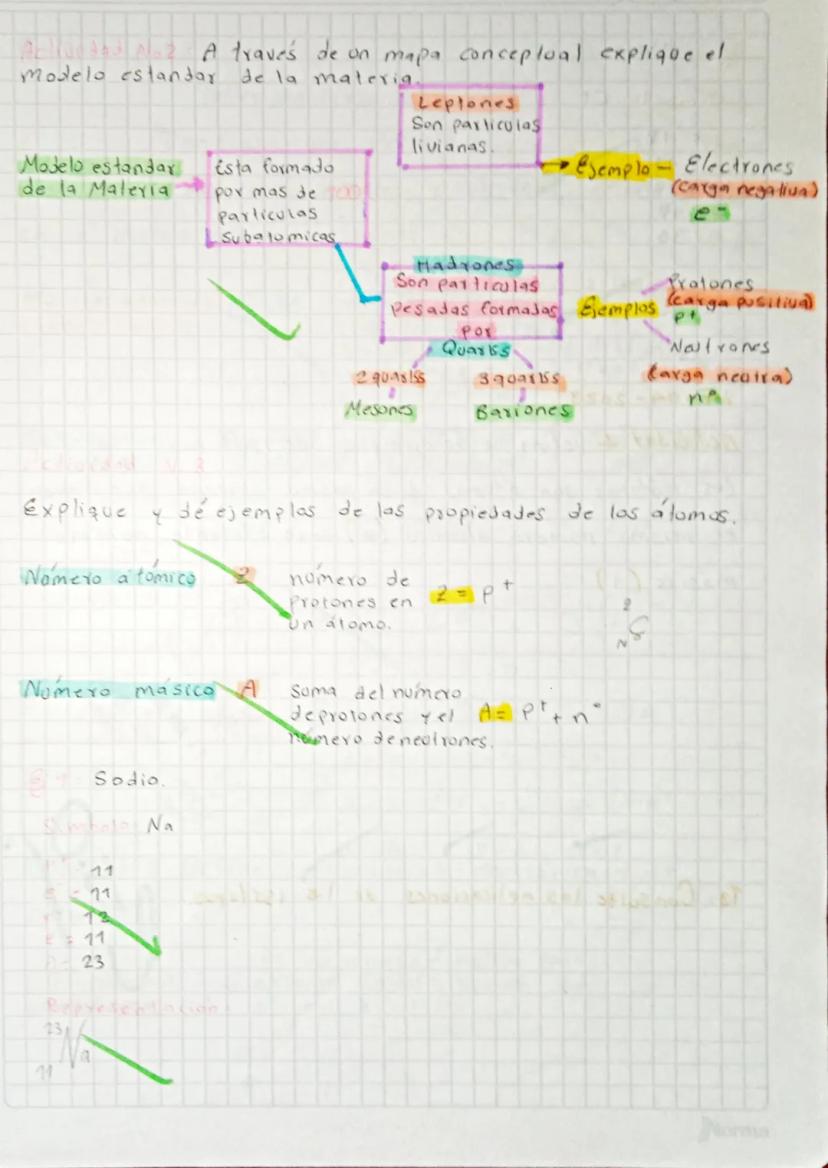 Actividad No2 A través de un mapa conceptual explique el
modelo estandar de la materia.
Leptones
Son particulas
livianas.
Modelo estandar
de la Materia
Esta formado
por mas de 100
particulas
subatomicas
Ejemplo - Electrones
(carga negativa)
e-
Hadrones
Son particulas
pesadas formadas
por
Quarks
2 quarks
3 quarks
Mesones
Bariones
Ejemplos
Protones
(carga positiva)
p+
Neutrones
(carga neutra)
n°
Actividad N.3
Explique y dé ejemplos de las propiedades de los átomos.
Número atómico Z número de
protones en
un átomo.
Z = p+
Número másico A Suma del número
de protones y el
número de neutrones.
A = p+ + n°
Sodio.
Simbolo: Na
11
11
12
11
23
Representacion:
23
Na
11
Norma